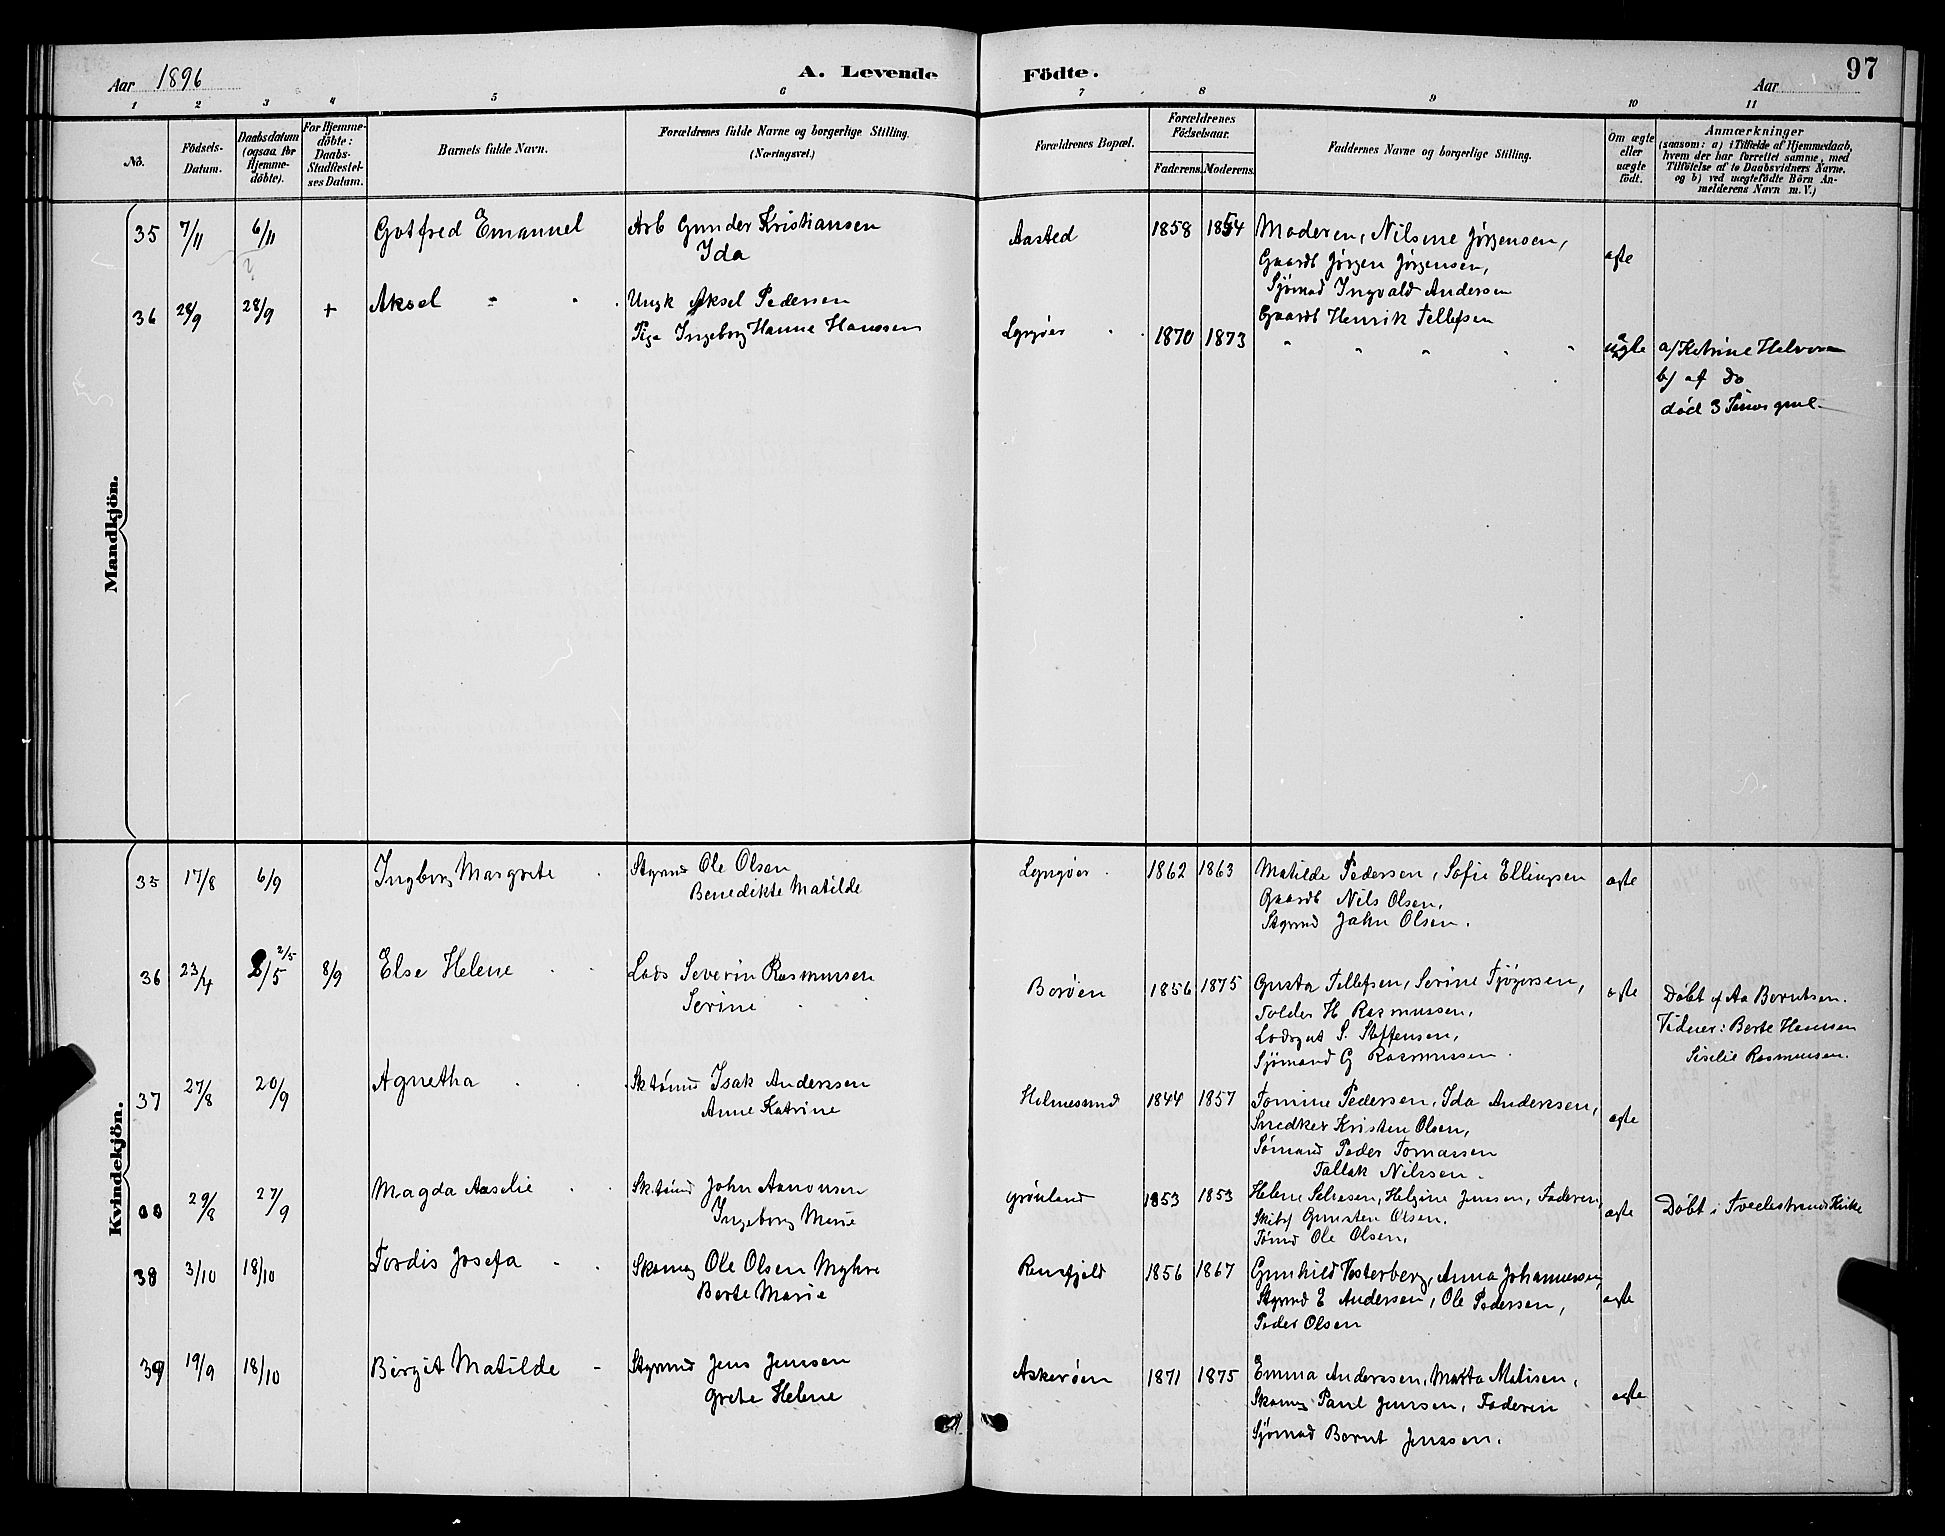 Aar 1896
A. Levende Födte.
Aar
97
1 2 3 4 5 6 7 8 9 10 11
No.
Födsels-Datum.
Daabsdatum (ogsaa for Hjemme-döbte).
For Hjemme-döbte: Daabs-Stadfæstel-ses Datum.
Barnets fulde Navn.
Forældrenes fulde Navne og borgerlige Stilling. (Næringsvei.)
Forældrenes Bopæl.
Forældrenes Födselsaar.
Faderens. Moderens.
Faddernes Navne og borgerlige Stilling.
Om ægte eller uægte födt.
Anmærkninger
(saasom: a) i Tilfælde af Hjemmedaab, hvem der har forrettet samme, med Tilföielse af to Daabsvidners Navne. og b) ved uægtefödte Börn An-melderens Navn m. V.)
Mandkjön.
35 7/11 6/11 Gotfred Emanuel Arb Gunder Kristiansen Aasted 1858 1854 Moderen, Nilsine Jørgensen,
Ida Gaardb Jørgen Jørgensen, ægte
Sjømad Ingvald Andersen
Gaardb Henrik Tellefsen
36 28/9 28/9 + Aksel Ungk Aksel Pedersen
Pige Ingeborg Hanne Hanssen Lyngøer 1870 1873 " " " " " uægte a/ Katrine Halvor
b/ af Do
død 3 Timer gml.
Kvindekjön.
35 17/8 6/9 Ingborg Margrete Styrmd Ole Olsen Lyngøer 1862 1863 Matilde Pedersen, Sofie Ellingsen ægte
Benedikte Matilde Gaardb Nils Olsen,
Styrmd John Olsen.
36 23/4 8/5 2/5 8/9 Else Helene Lods Severin Rasmussen Borøen 1856 1875 Gusta Tellefsen, Serine Tjøgersen, ægte Døbt af Aa Berntsen.
Serine Tolder H Rasmussen, Vidner: Berte Hanssen
Lodsgut S. Steffensen, Siselie Rasmussen.
Sjømand G Rasmussen
37 27/8 20/9 Agnetha Sktømd Isak Anderssen Holmesund 1844 1857 Tomine Pedersen, Ida Anderssen, ægte
Anne Katrine Snedker Kristen Olsen,
Tømand Peder Tomassen
Tallak Nilssen.
29/8 27/9 Magda Aaselie Sktømd John Aanonsen Grønland 1853 1853 Helene Jenssen, Faderen, ægte Døbt i Tvedestrand Kirke
Ingeborg Marie Skibsf Gunsten Olsen,
Tømd Ole Olsen,
38 3/10 18/10 Tordis Josefa Skomag Ole Olsen Myhre Rensfjeld 1856 1867 Gunhild Vesterberg, Anna Johannessen, ægte
Berte Marie Styrmd E Andersen, Ole Pedersen,
Peder Olsen
39 19/9 18/10 Birgit Matilde Styrmd Jens Jenssen Askerøen 1871 1875 Emma Anderssen, Marta Matisen, ægte
Grete Helene Skomag Paul Jenssen, Faderen
Sjømad Bernt Jenssen.